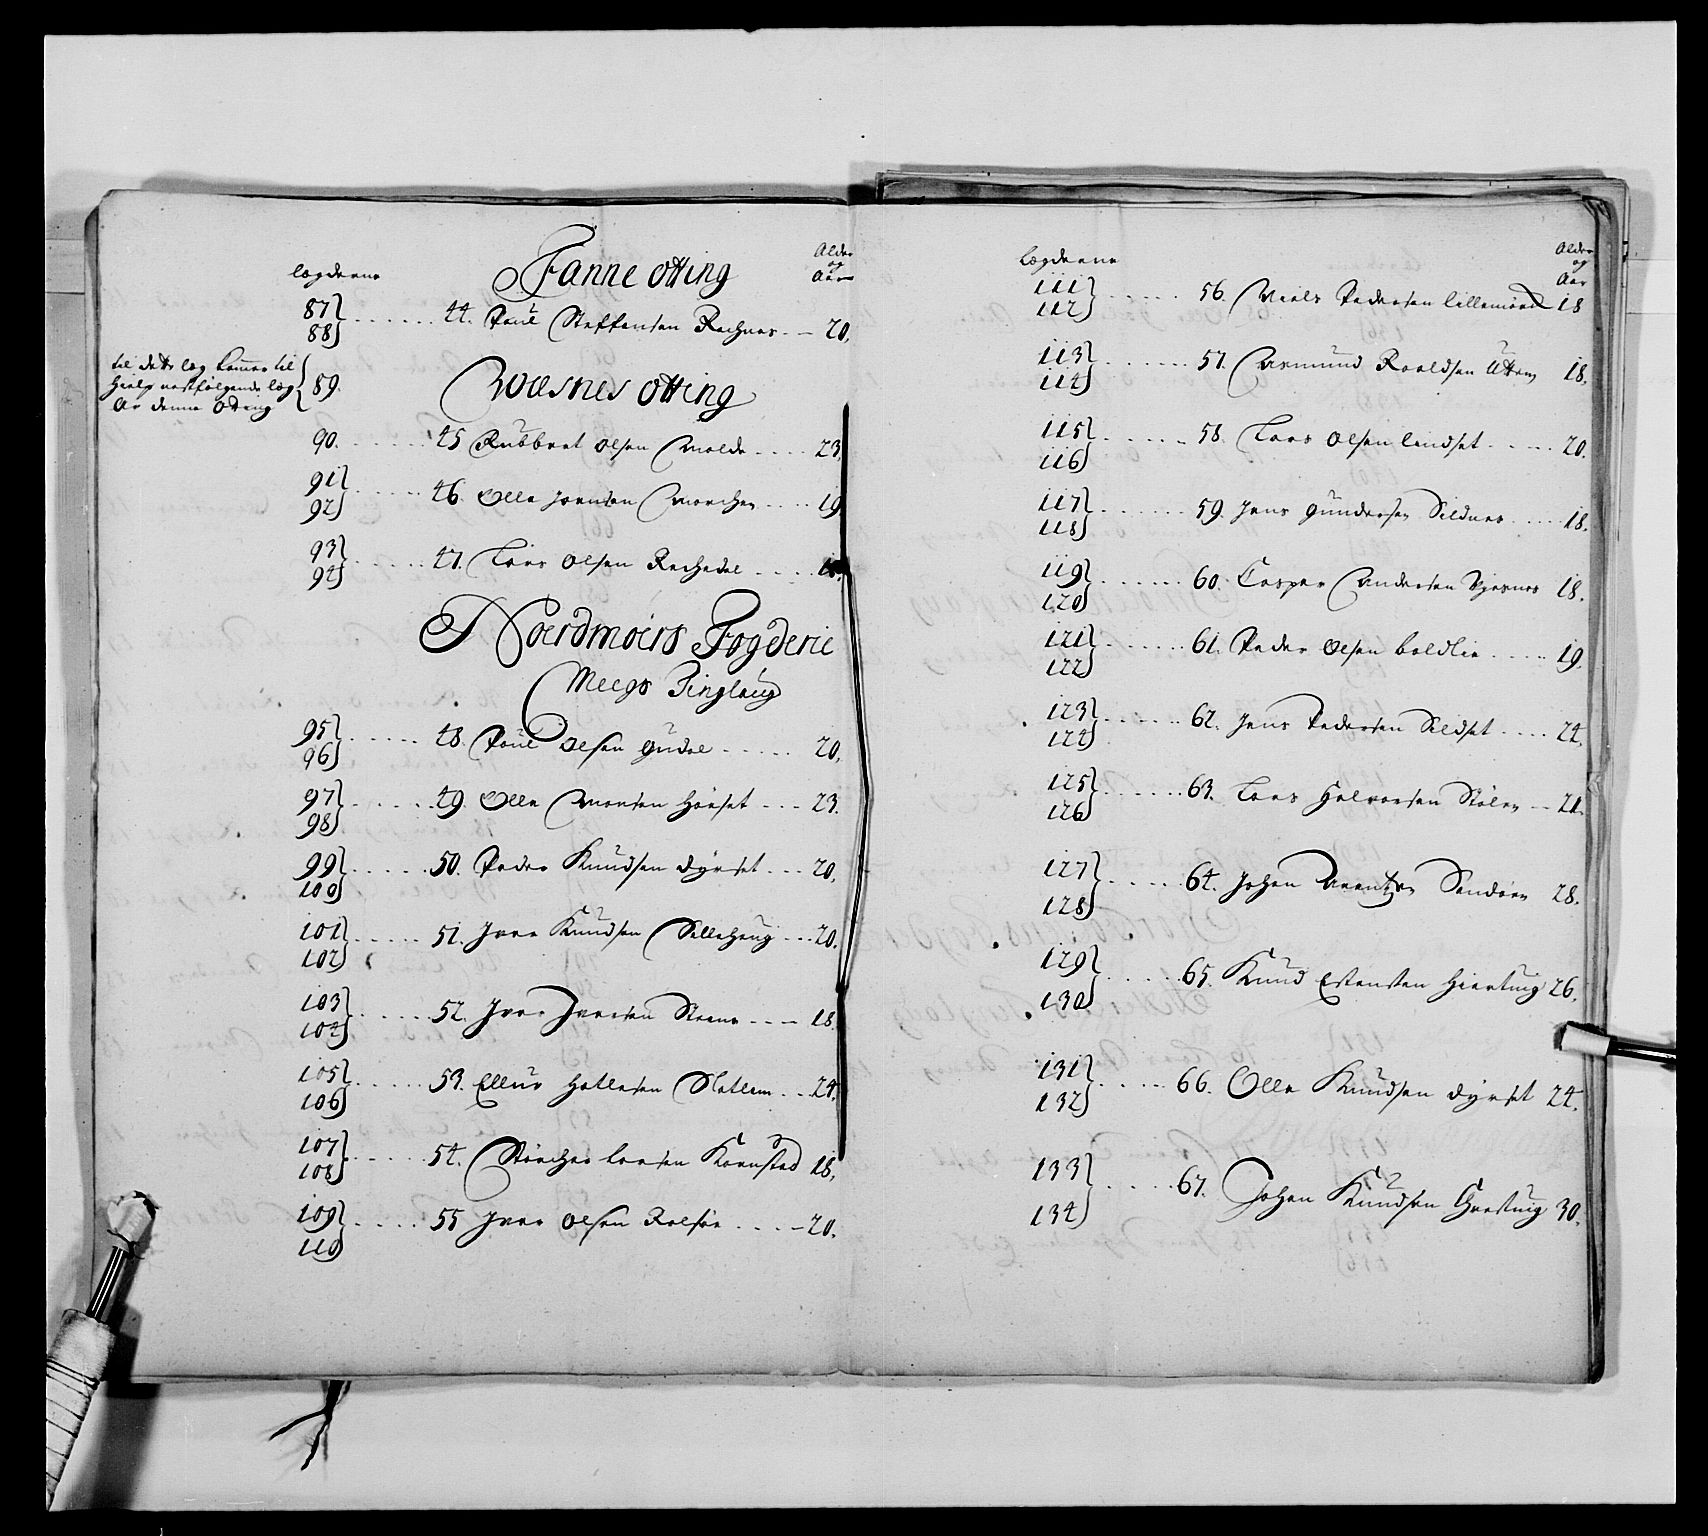 Lægderne
Fanne otting
Alder
og
Aar
87
88 44. Poul Steffensen Rechnes 20.
til dette læg kommer til
hielp næstfølgende læg
Av denne Otting
89.
Woesnes otting
90. 45 Rubbret Olsen Molde 23.
91
92 46. Olle Jonsen 19
93
94 47. Lars Olsen Rechedal
Noerdmoers Fogderie
Meegs Tinglaug
95
96 48. Poul Olsen Gudal 20.
97
98 49. Olle Monsen Hogset 23.
99
100 50. Peder Knudsen dyrset 20.
101
102 51. Iver Knudsen Sellehaug 20.
103
104 52. Iver Iversen Steene 18.
105
106 53. Ellür Hallesen Slatlem 24.
107
108 54. Størcher Larsen Kornstad 18.
109
110 55 Iver Olsen Rolsøe 20.
Lægderne
Alder
og
Aar
111
112 56. Niels Pedersen Lillemoen 18
113
114 57. Asmund Roaldsen 18.
115
116 58. Lars Olsen Lindset 20.
117
118 59. Jens Gundersen Sildnes 18.
119
120 60. Casper Andersen 18.
121
122 61. Peder Olsen Boldlie 19.
123
124 62. Jens Pedersen Sildset 24.
125
126 63. Lars Halvorsen Stølen 21.
127
128 64. Johan Arentzen Sandøen 28.
129
130 65. Knud Estensten Hiertuig 26.
131
132 66. Olle Knudsen dyrset 24.
133
134 67. Johan Knudsen 30.